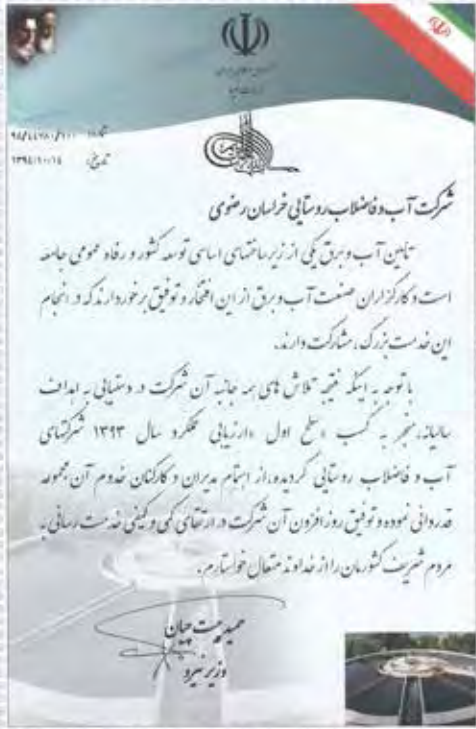 جمهوری اسلامی ایران
وزارت نیرو
شماره:
تاریخ: ۱۳۹۴/۱۰/۱۴
شرکت آب و فاضلاب روستایی خراسان رضوی
تامین آب و برق یکی از زیرساختهای اساسی توسعه کشور و رفاه عمومی جامعه
است و کارگزاران صنعت آب و برق از این افتخار و توفیق برخوردارند که در انجام
این خدمت بزرگ، مشارکت دارند.
با توجه به اینکه نتیجه تلاش های همه جانبه آن شرکت در دستیابی به اهداف
سالیانه، منجر به کسب «سطح اول» ارزیابی عملکرد سال ۱۳۹۳ شرکتهای
آب و فاضلاب روستایی گردیده، از اهتمام مدیران و کارکنان خدوم آن مجموعه
قدردانی نموده و توفیق روزافزون آن شرکت در ارتقای کمی و کیفی خدمت رسانی به
مردم شریف کشورمان را از خداوند متعال خواستارم.
حمید چیت چیان
وزیر نیرو